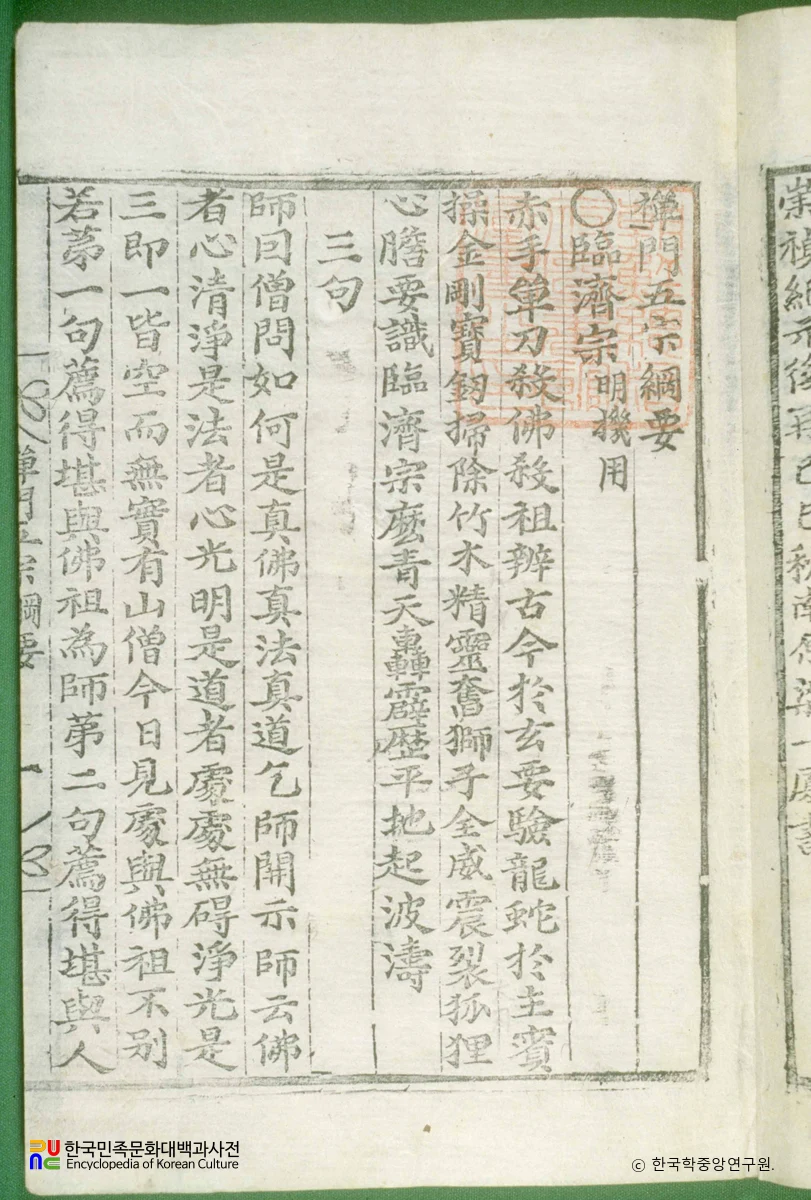 崇禎紀元後再己巳秋南
禪門五宗綱要
〇臨濟宗明機用
赤手單刀殺佛殺祖辨古今於玄要驗龍蛇於主賓
操金剛寶釰掃除竹木精靈奮獅子全威震裂狐狸
心膽要識臨濟宗麽青天轟霹歷平地起波濤
三句
師囙僧問如何是真佛真法真道乞師開示師云佛
者心清淨是法者心光明是道者處處無碍淨光是
三即一皆空而無實有山僧今日見處與佛祖不别
若苐一句薦得堪與佛祖為師苐二句薦得堪與人
禪門五宗綱要 一
한국민족문화대백과사전
Encyclopedia of Korean Culture
ⓒ 한국학중앙연구원.